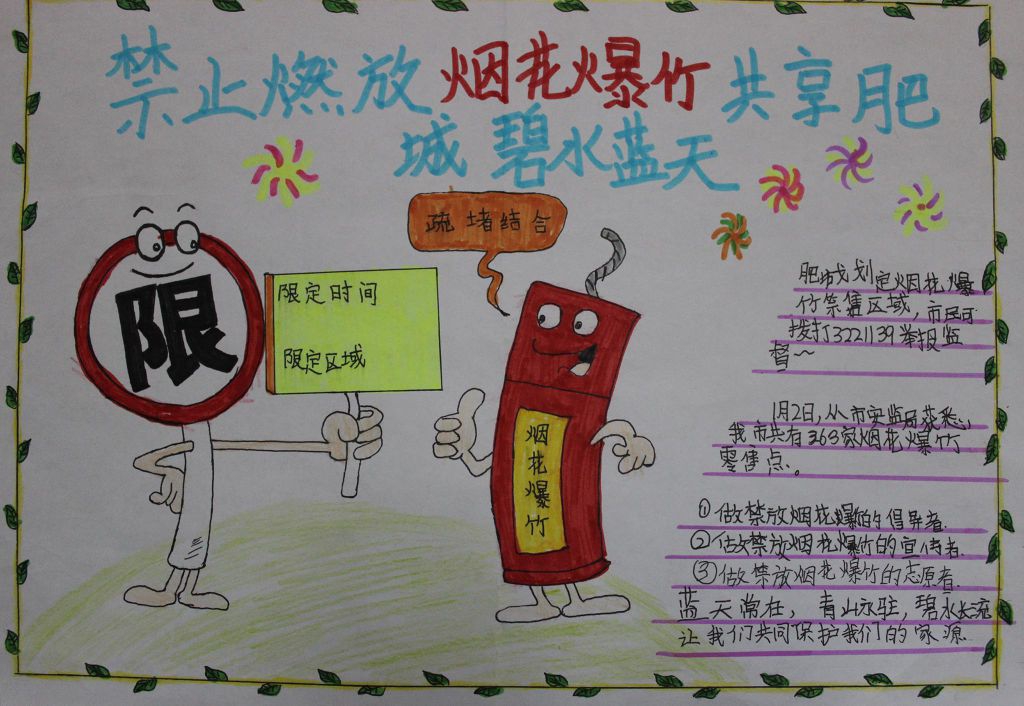 禁止燃放烟花爆竹共享肥
城碧水蓝天
疏堵结合
限
限定时间
限定区域
烟花爆竹
肥城划定烟花爆
竹禁售区域，市民可
拨打3221139举报监
督~
1月2日，从市安监局获悉，
我市共有363家烟花爆竹
零售点。
①做禁放烟花爆竹的倡导者.
②做禁放烟花爆竹的宣传者.
③做禁放烟花爆竹的志愿者.
蓝天常在，青山永驻，碧水长流
让我们共同保护我们的家源.